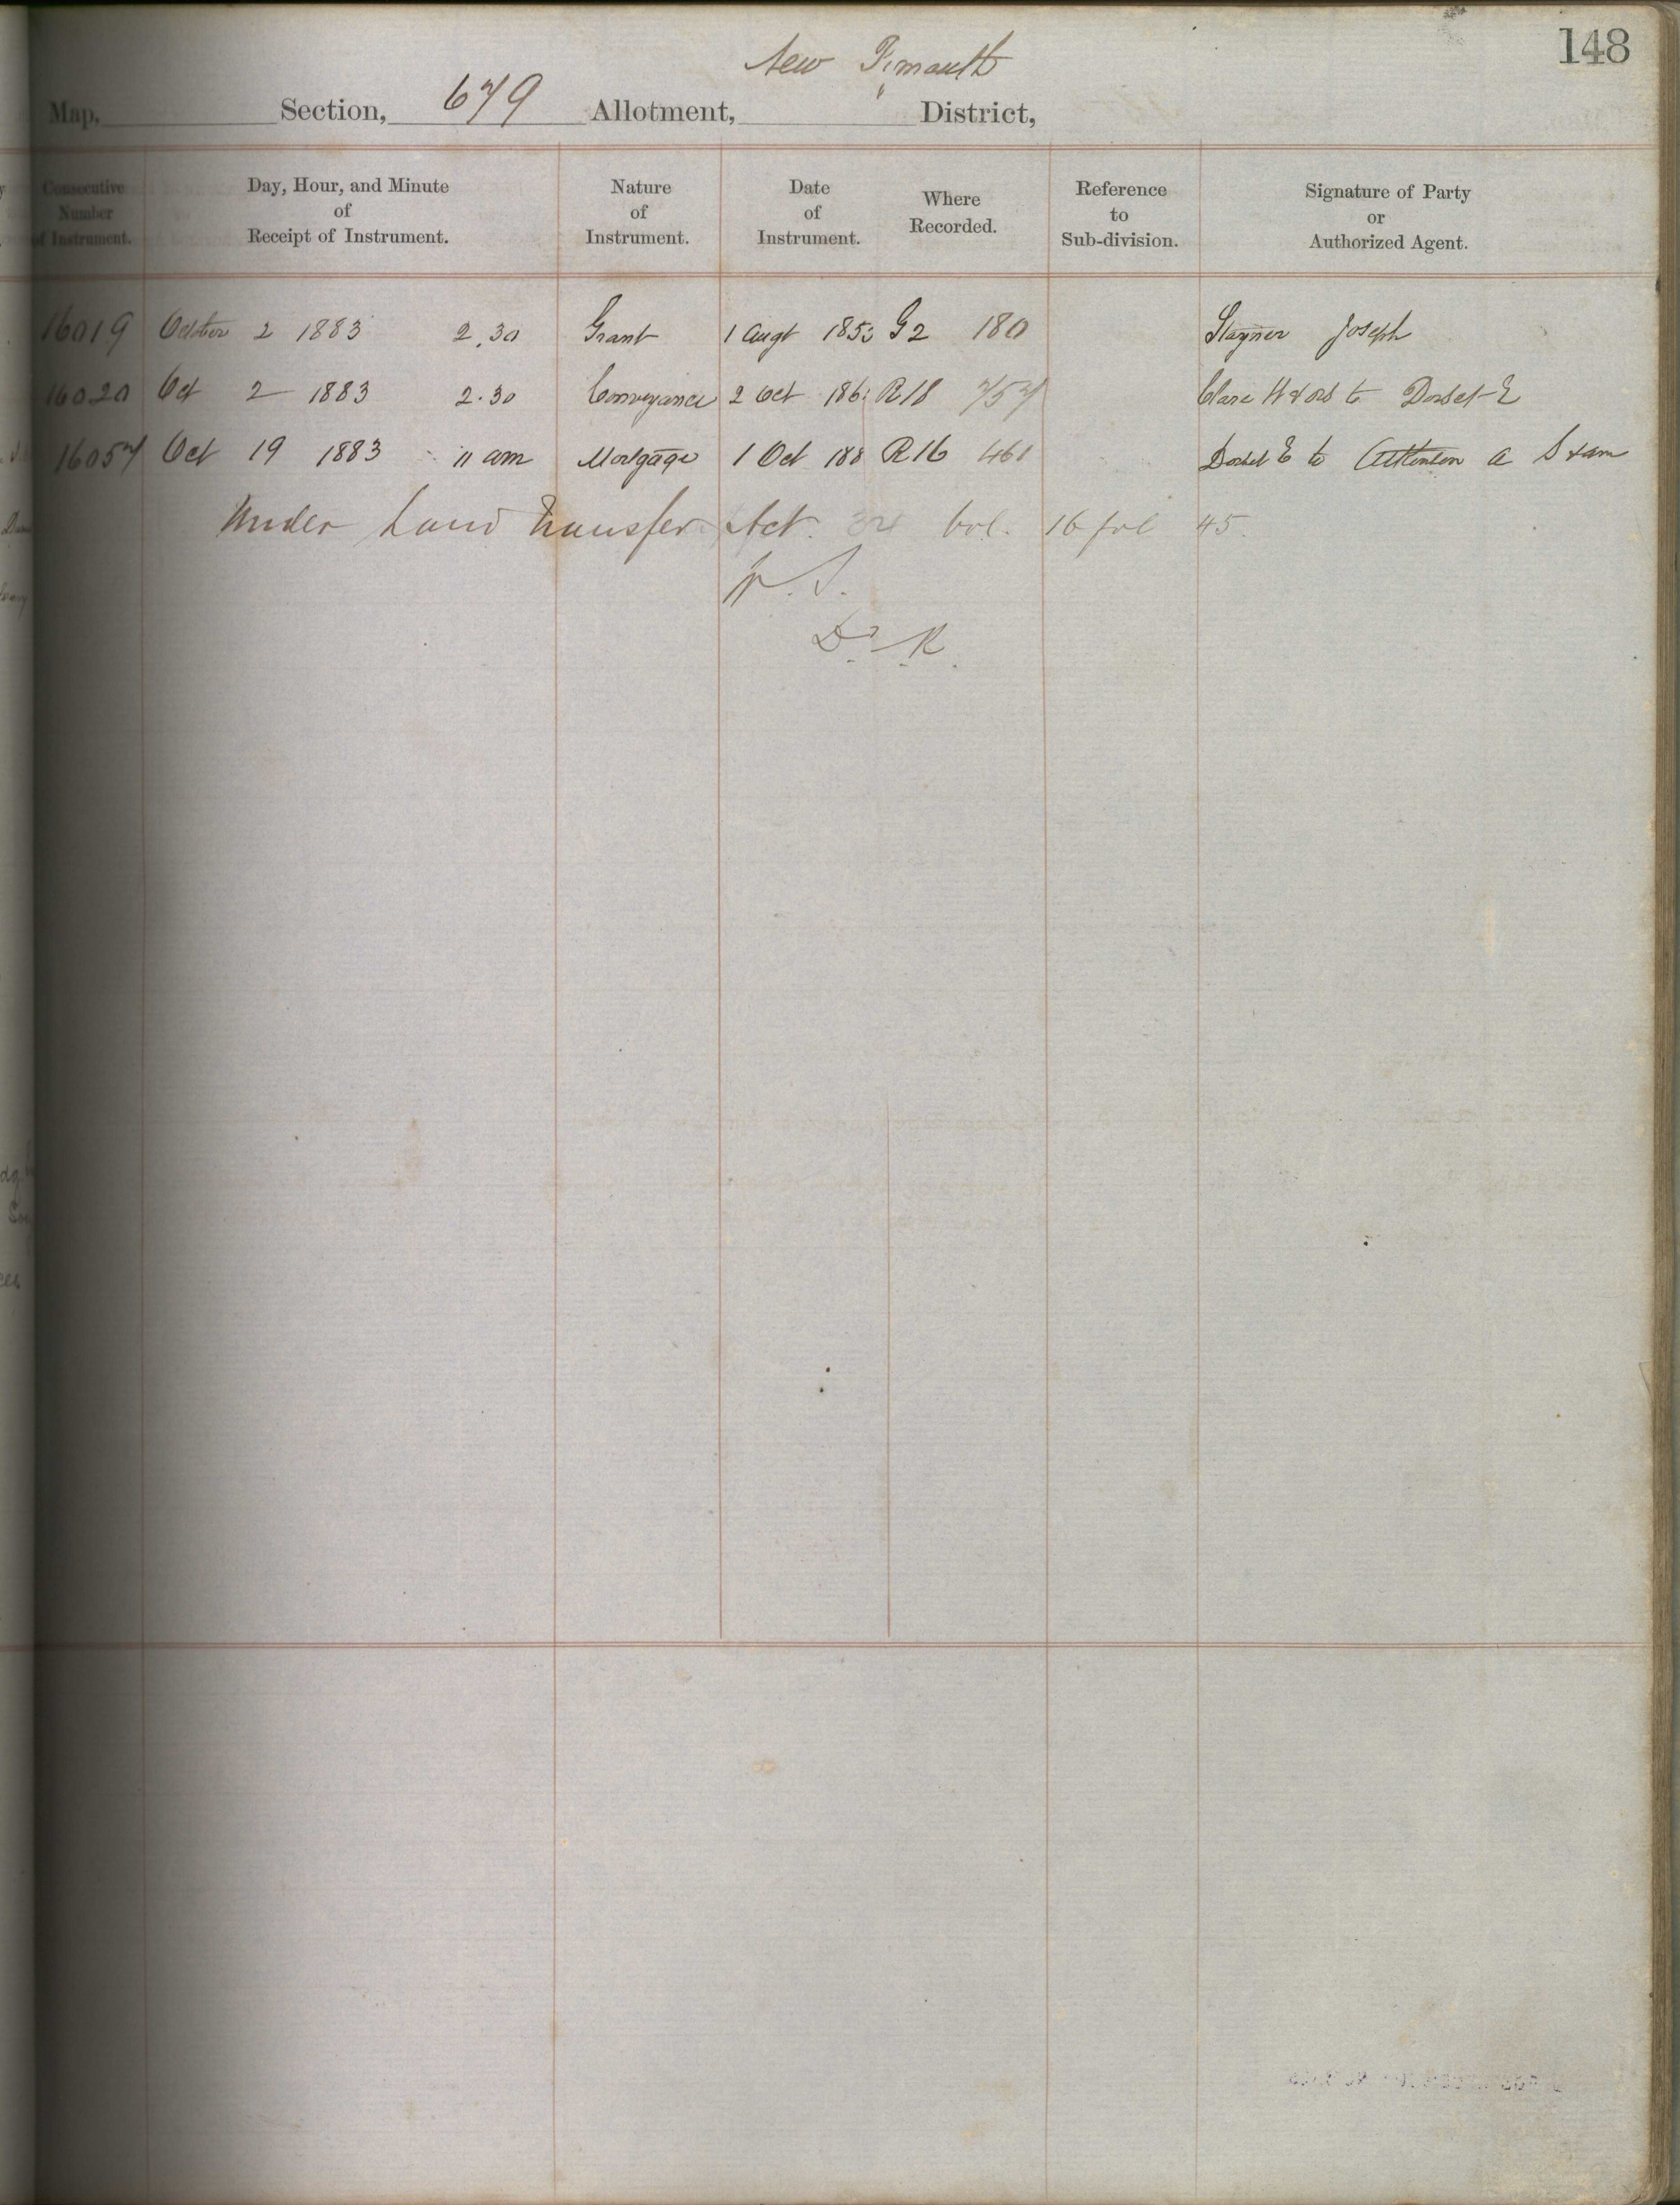 148
New Plymouth
Map, Section, 679 Allotment, District,
Consecutive Number of Instrument. Day, Hour, and Minute of Receipt of Instrument. Nature of Instrument. Date of Instrument. Where Recorded. Reference to Sub-division. Signature of Party or Authorized Agent.
16019 October 2 1883 2.30 Grant 1 Augt 1853 G2 180 Stayner Joseph
16020 Oct 2 1883 2.30 Conveyance 2 Oct 186 R18 757 Clare H & ors to Dorset E
16057 Oct 19 1883 11 am Mortgage 1 Oct 188 R16 461 Dorset E to Atkinson A S & anr
Under Land Transfer Act Vol. 16 fol 45.
D. R.